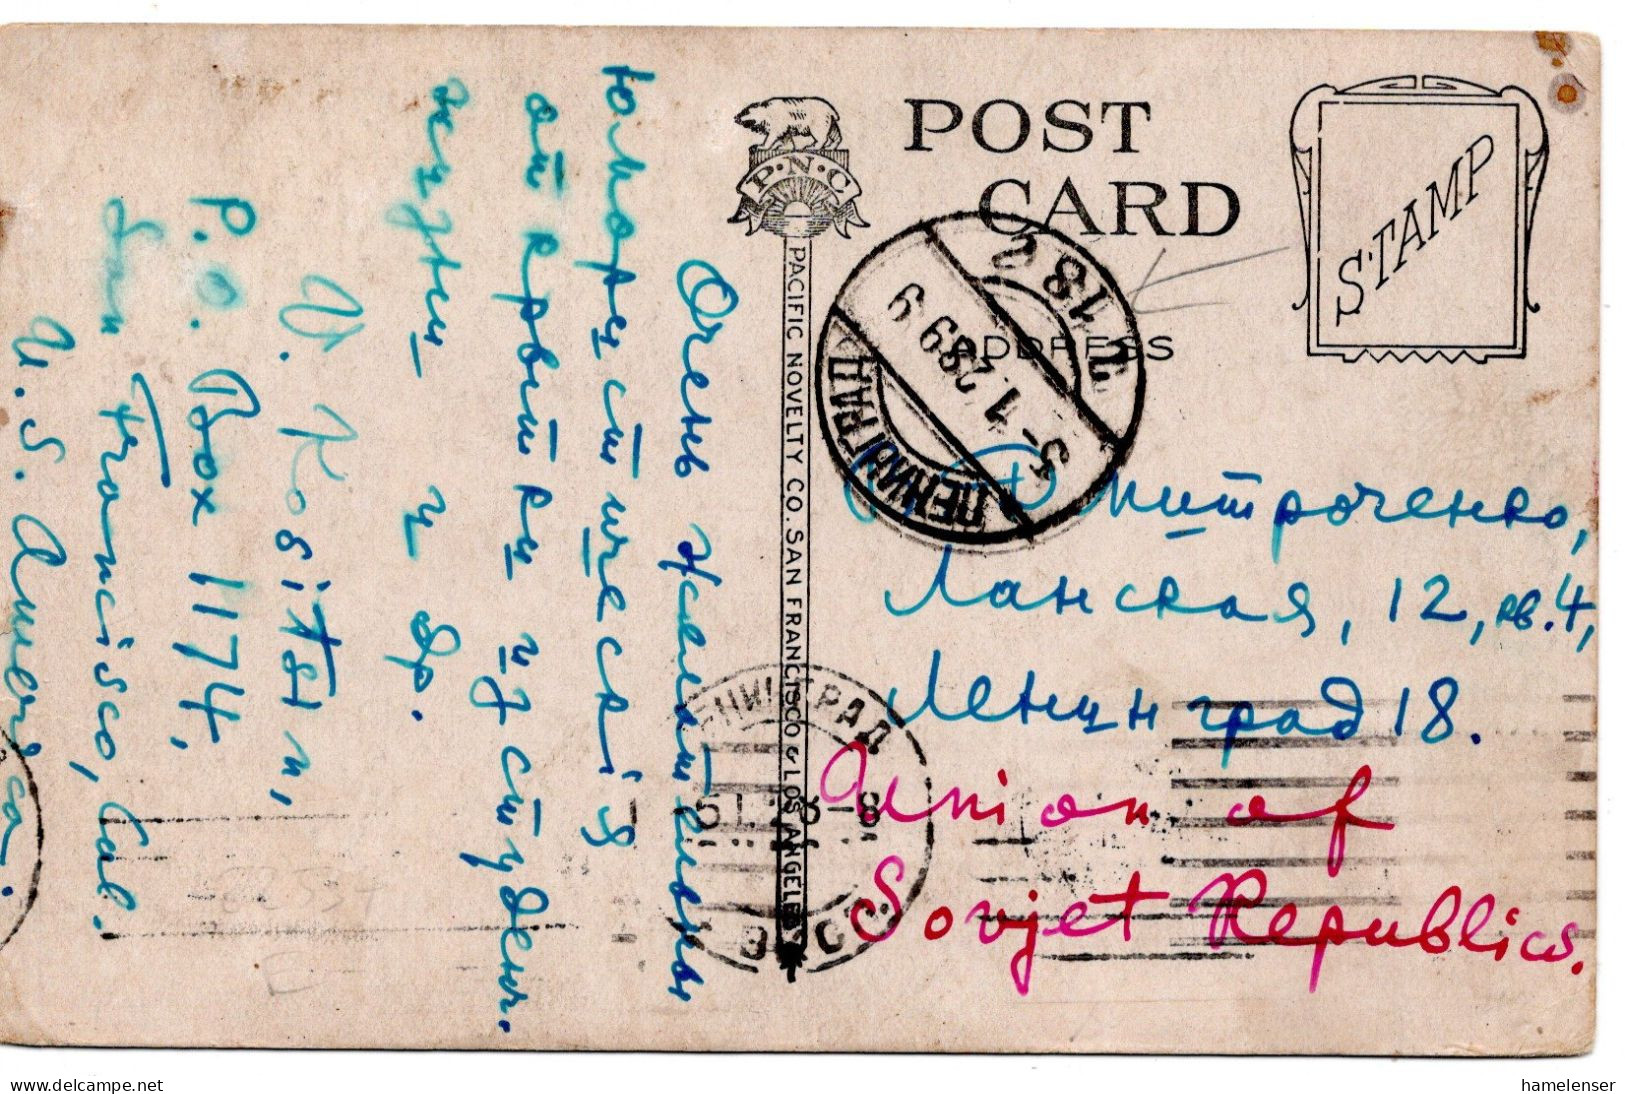 POST
CARD
P·N·C
STAMP
ADDRESS
PACIFIC NOVELTY CO. SAN FRANCISCO & LOS ANGELES
ЛЕНИНГРАД
5-1.2899
2 18 2
Очень желательны
юмористическія
открытки из студен.
жизни и др.
V. Kositsin,
P.O. Box 1174,
San Francisco, Cal.
U.S. America.
Дмитроченко,
Ланская, 12, кв. 4,
Ленинград 18.
Union of
Sovjet Republics.
ЛЕНИНГРАД
hamelenser
www.delcampe.net